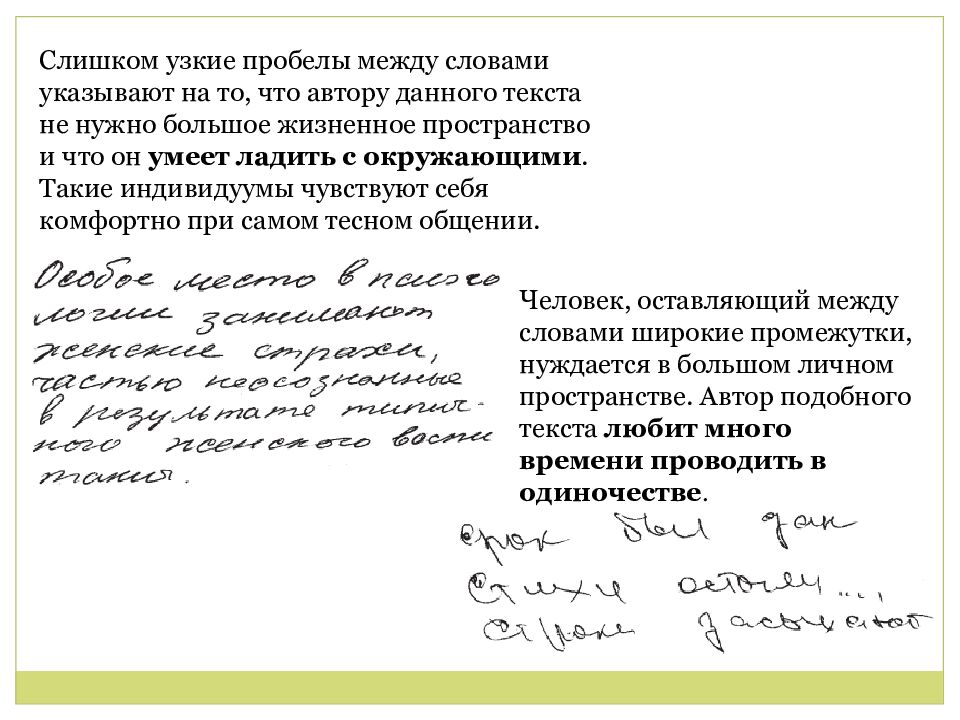 Слишком узкие пробелы между словами
указывают на то, что автору данного текста
не нужно большое жизненное пространство
и что он умеет ладить с окружающими.
Такие индивидуумы чувствуют себя
комфортно при самом тесном общении.
Особое место в психо
логии занимают
женские страхи,
частью неосознанные
в результате типич-
ного женского воспи
тания.
Человек, оставляющий между
словами широкие промежутки,
нуждается в большом личном
пространстве. Автор подобного
текста любит много
времени проводить в
одиночестве.
срок был дан
Стихи
Строки засыхают